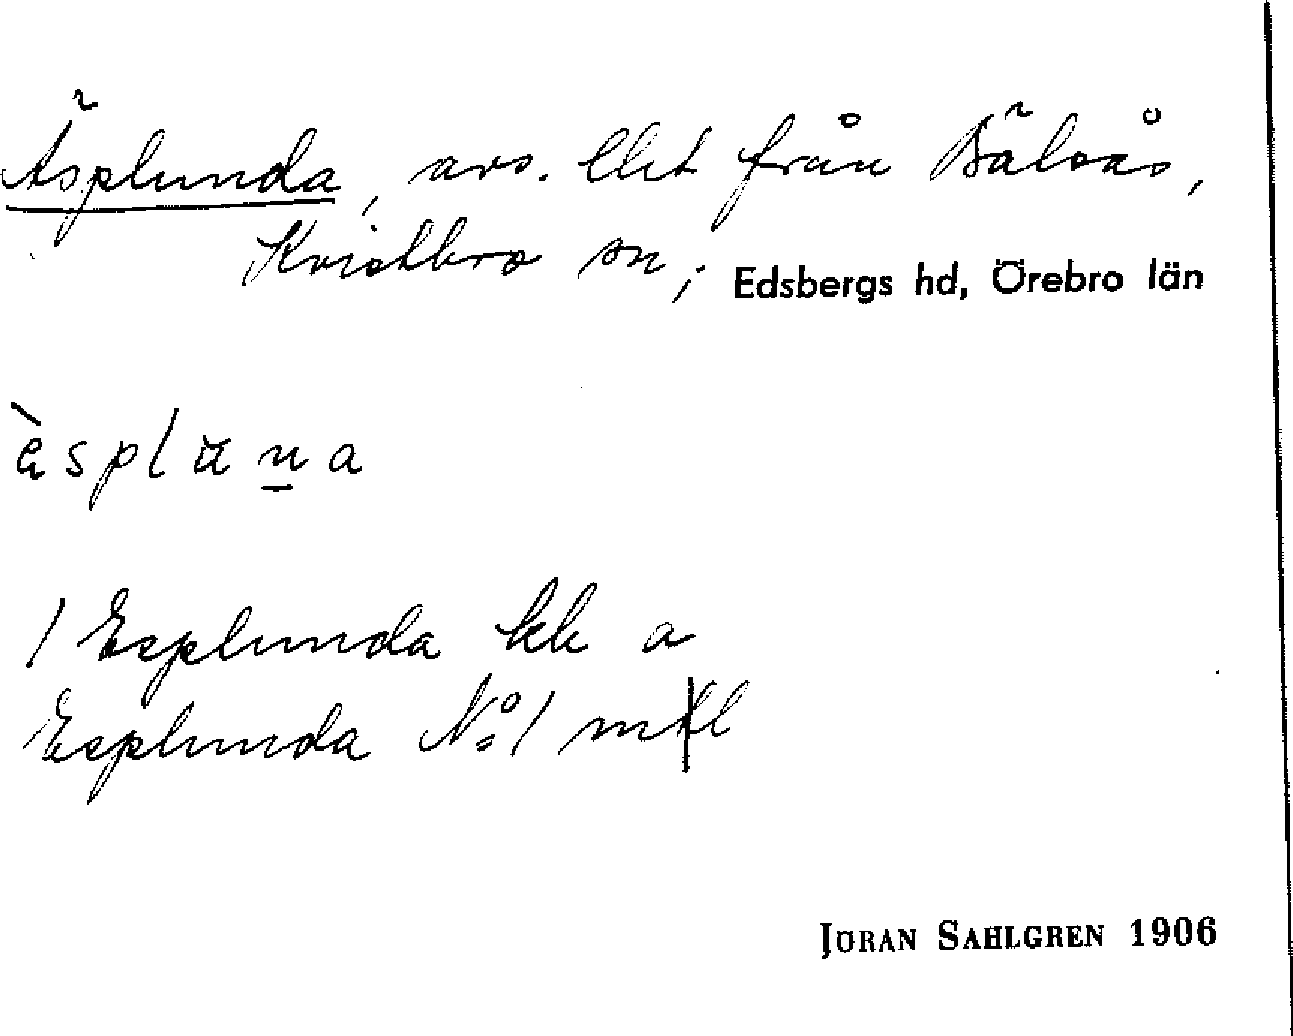 Äsplunda, avs. Elet från Bälsås,
Kvistbro sn, Edsbergs hd, Örebro län
èsplŭna
1 Esplunda kk a
Esplunda No 1 mtl
JÖRAN SAHLGREN 1906